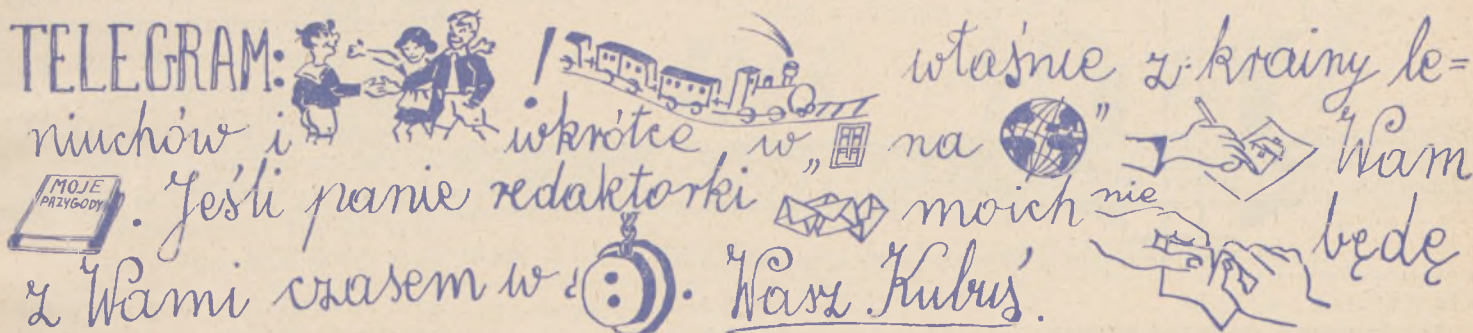 TELEGRAM: ! właśnie z krainy le=
niuchów i wkrótce w „ na ” Wam
MOJE PRZYGODY . Jeśli panie redaktorki moich nie będę
z Wami czasem w . Wasz Kubuś.